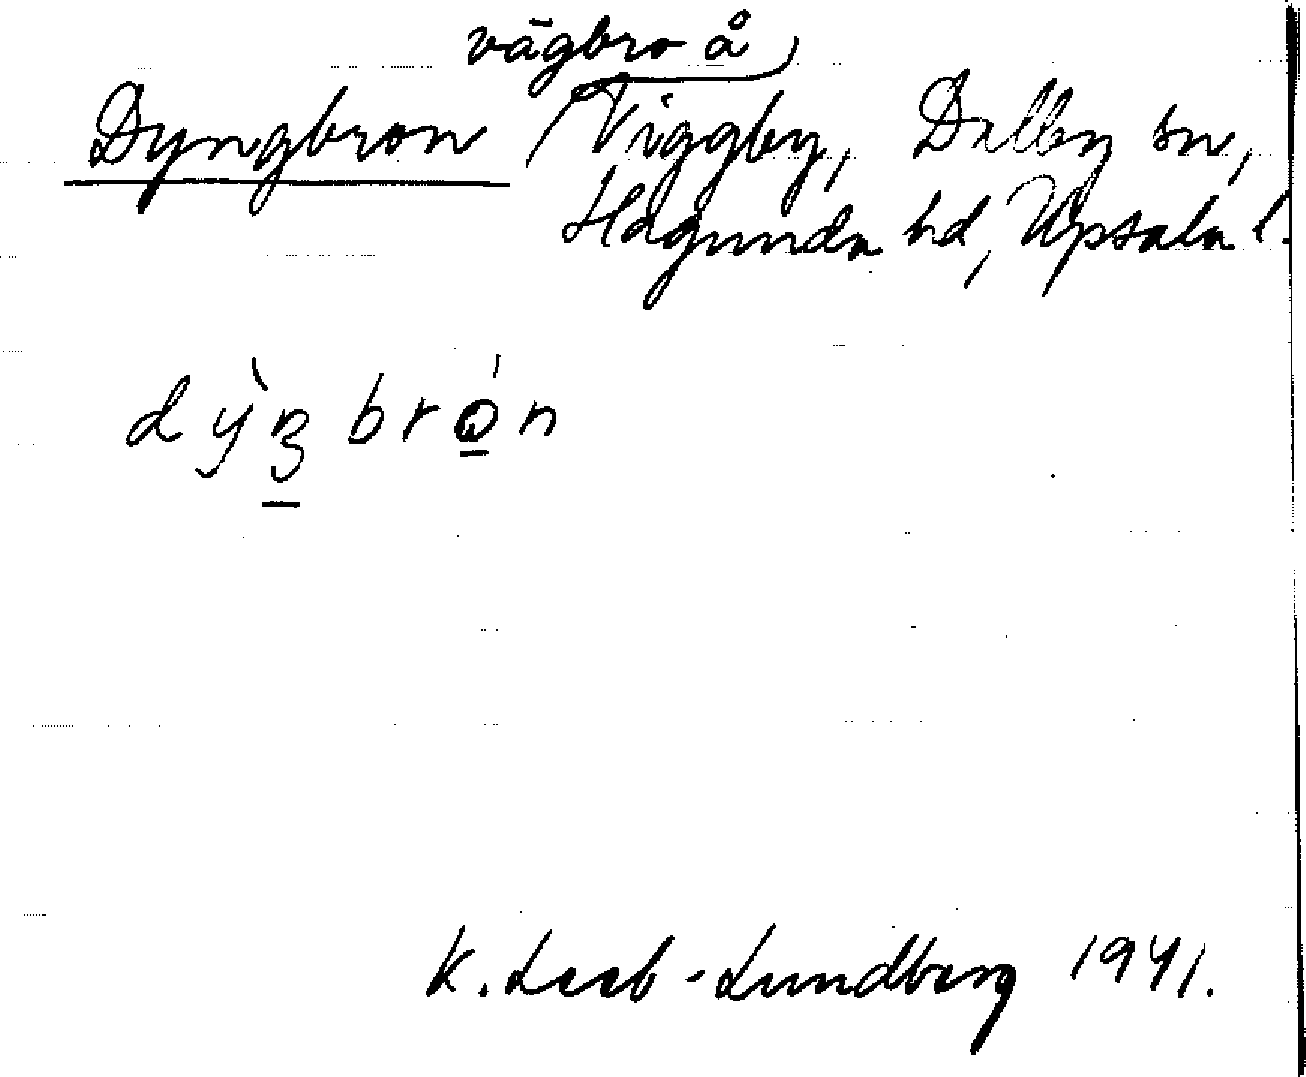 vägbro å
Dyngbron Viggby, Dalby sn,
Hagunda hd, Upsala l.
dy̌ŋ̠ brǫ̠́n
K. Leeb-Lundberg 1941.